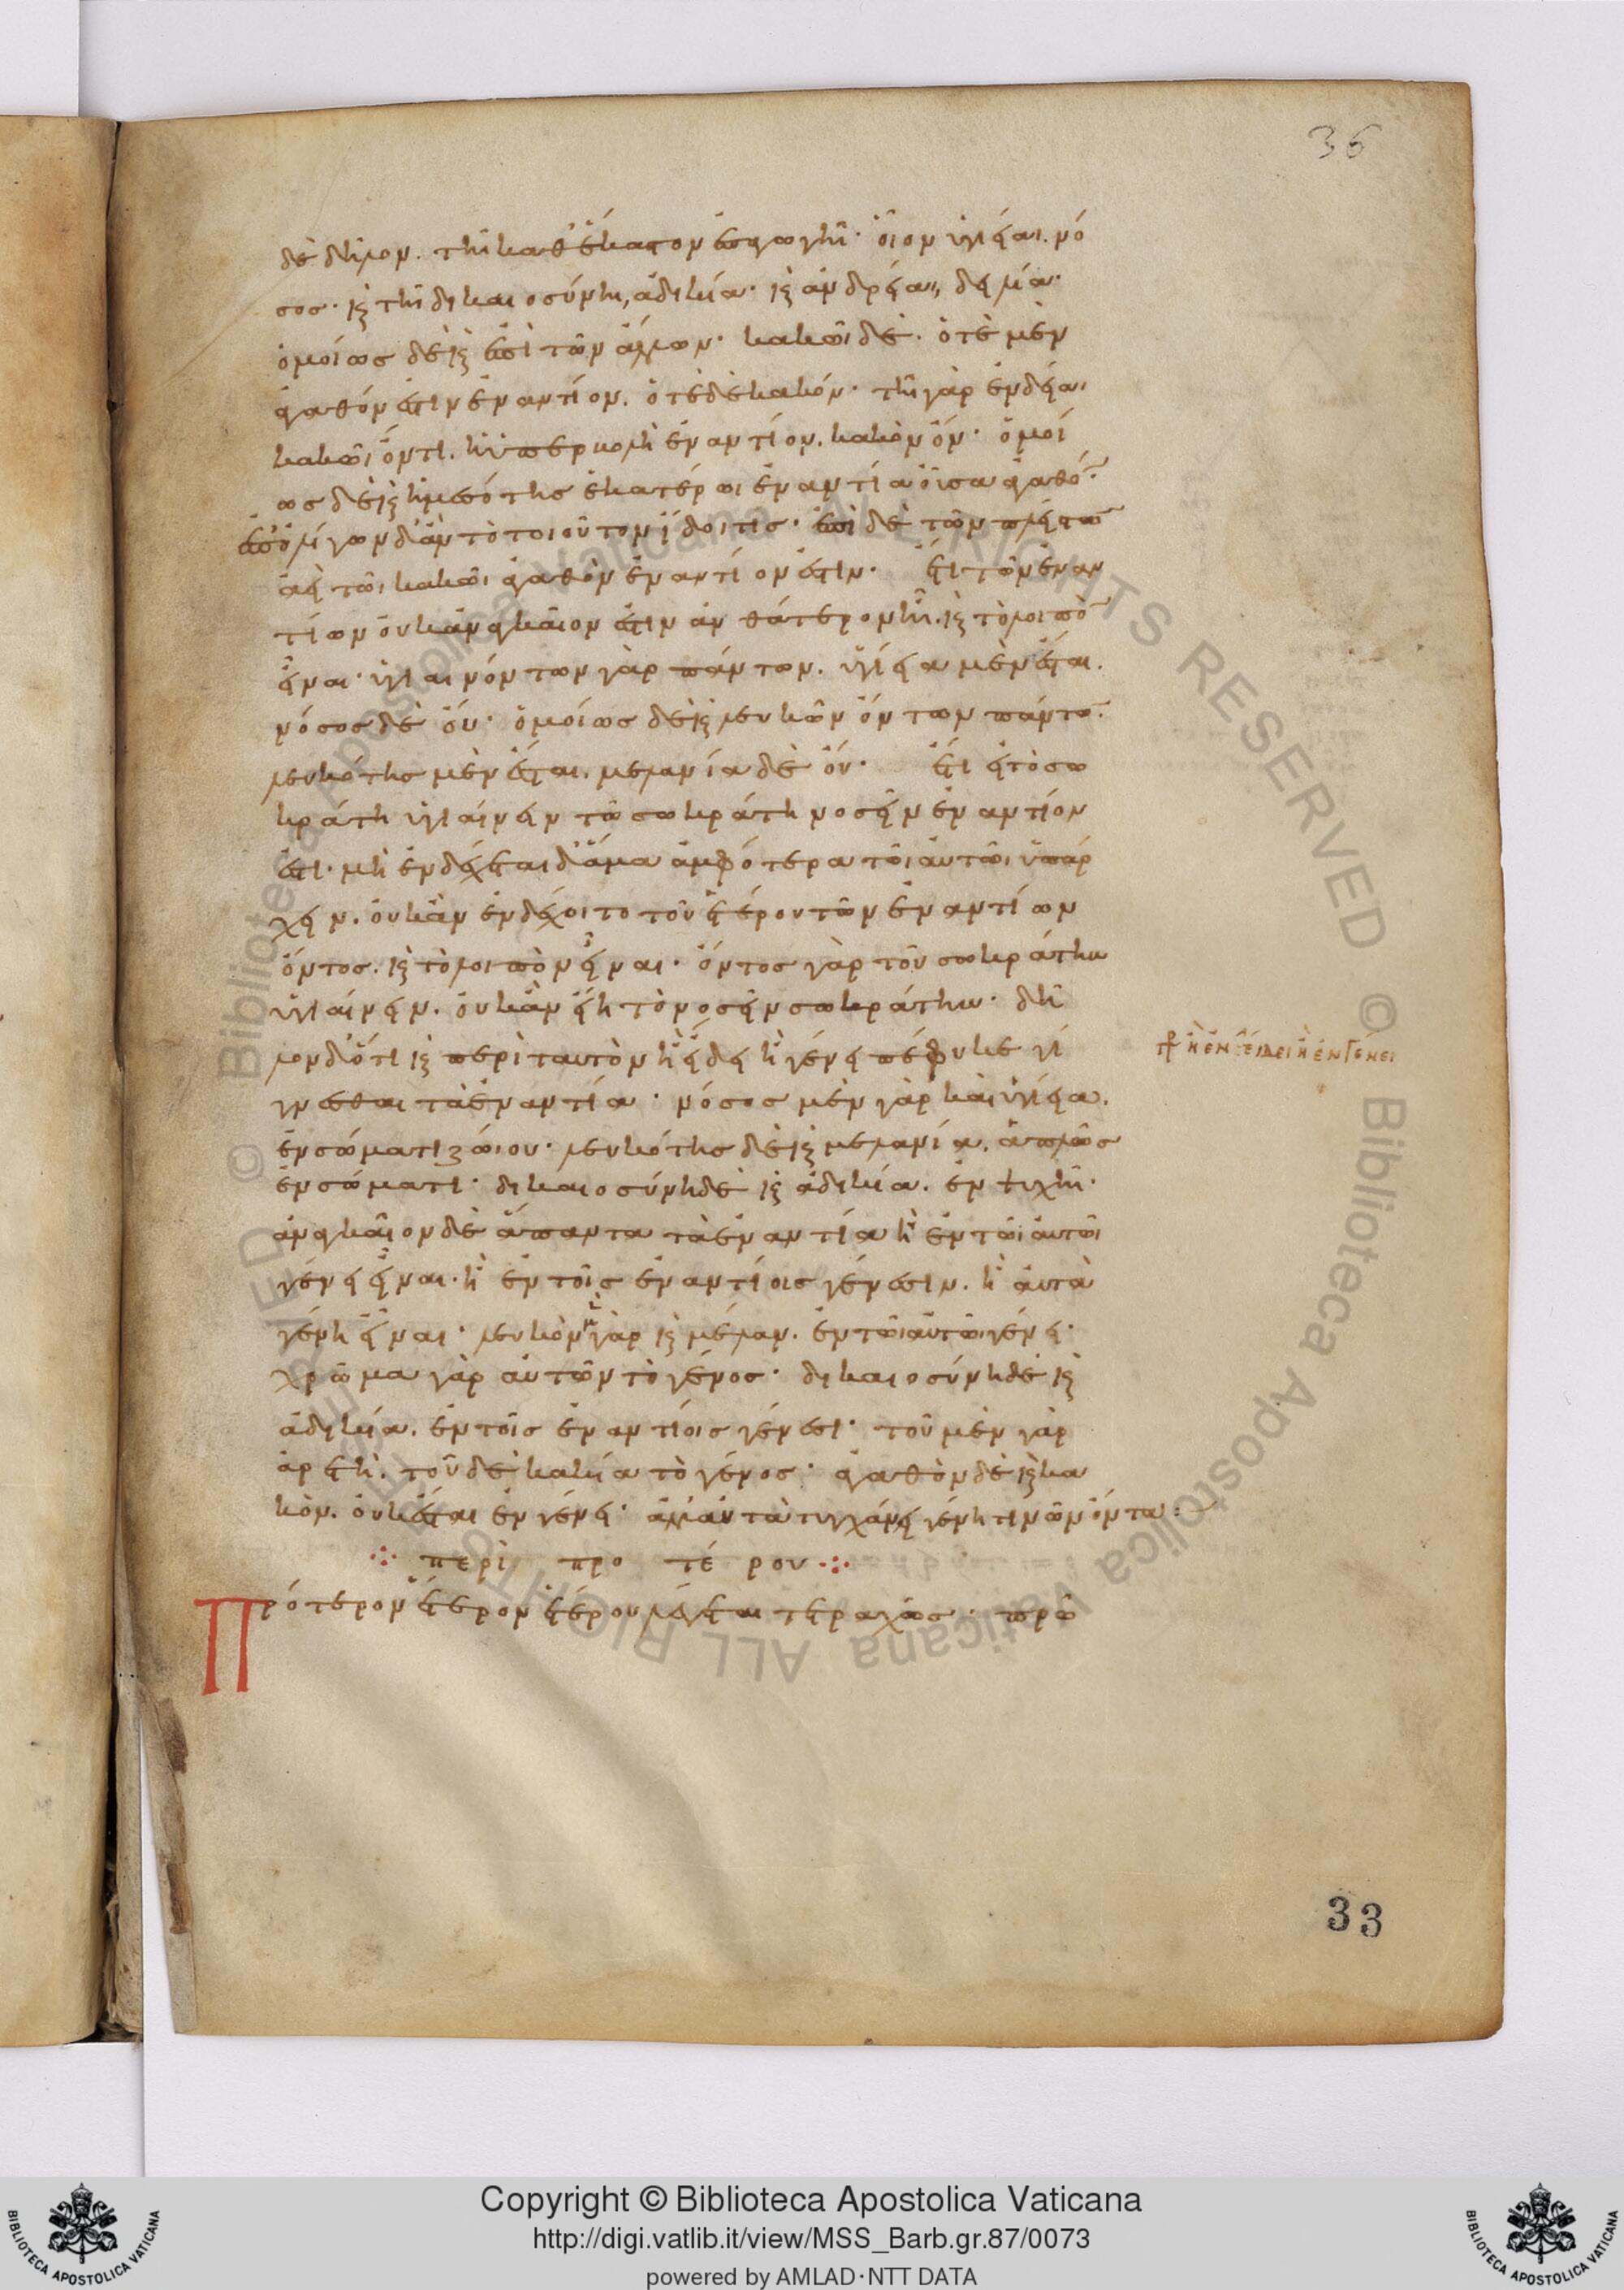 36
δὲ δῆλον. τῆι καθ' ἕκαστον ἐπαγωγῆι· οἷον ὑγιείαι. νό
σος· κ̀ τῆι δικαιοσύνηι, ἀδικία· κ̀ ἀνδρείαι, δειλία·
ὁμοίως δὲ κ̀ ἐπὶ τῶν ἄλλων· κακῶι δὲ. ὁτὲ μὲν
ἀγαθόν ἐστιν ἐναντίον. ὁτὲ δὲ κακόν· τῆι γὰρ ἐνδείαι
κακῶι ὄντι. ἡ ὑπερβολὴ ἐναντίον. κακὸν ὄν· ὁμοί
ως δὲ κ̀ ἡ μεσότης ἑκατέρωι ἐναντία οὖσα ἀγαθό̄·
ἐπ' ὀλίγων δ' ἂν τὸ τοιοῦτον ἴδοι τις· ἐπὶ δὲ τῶν πλείστω̄
ἀεὶ τῶι κακῶι ἀγαθὸν ἐναντίον ἐστιν· ἔτι τῶν ἐναν
τίων οὐκ ἀναγκαῖον ἐστιν ἂν θάτερον ἦι. κ̀ τὸ λοιπὸ̄
εἶναι· ὑγιαινόντων γὰρ πάντων. ὑγίεια μὲν ἔσται.
νόσος δὲ οὔ· ὁμοίως δὲ κ̀ λευκῶν ὄντων πάντω̄·
λευκότης μὲν ἔσται. μελανία δὲ οὔ· ἔτι εἰ τὸ σω
κράτη ὑγιαίνειν τῶ σωκράτη νοσεῖν ἐναντίον
ἐστι· μὴ ἐνδέχεται δ' ἅμα ἀμφότερα τῶι αὐτῶι ὑπάρ
χειν. οὐκ ἂν ἐνδέχοιτο τοῦ ἑτέρου τῶν ἐναντίων
ὄντος. κ̀ τὸ λοιπὸν εἶναι· ὄντος γὰρ τοῦ σωκράτην
ὑγιαίνειν. οὐκ ἂν εἴη τὸ νοσεῖν σωκράτην· δῆ
λον δ' ὅτι κ̀ περὶ ταυτὸν ἢ εἴδει ἢ γένει πέφυκε γί
γρ ἢ ἐν εἴδει ἢ ἐν γένει
γνεσθαι τὰ ἐναντία· νόσος μὲν γὰρ καὶ ὑγίεια.
ἐν σώματι ζώιου· λευκότης δὲ κ̀ μελανία. ἁπλῶς
ἐν σώματι· δικαιοσύνη δὲ κ̀ ἀδικία. ἐν ψυχῆι·
ἀναγκαῖον δὲ ἅπαντα τὰ ἐναντία ἢ ἐν τῶι αὐτῶι
γένει εἶναι· ἢ ἐν τοῖς ἐναντίοις γένεσιν. ἢ αὐτὰ
γένη εἶναι· λευκὸν μὲν γὰρ κ̀ μέλαν. ἐν τῶι αὐτῶι γένει·
χρῶμα γὰρ αὐτῶν τὸ γένος· δικαιοσύνη δὲ κ̀
ἀδικία. ἐν τοῖς ἐναντίοις γένεσι· τοῦ μὲν γὰρ
ἀρετὴ. τοῦ δὲ κακία τὸ γένος· ἀγαθὸν δὲ κ̀ κα
κὸν. οὐκ ἔσται ἐν γένει· ἀλλ' αὐτὰ τυγχάνει γένη τινῶν ὄντα:
περὶ προτέρου
Πρότερον ἕτερον ἑτέρου λέγεται τετραχῶς· πρῶ
33
© Biblioteca Apostolica Vaticana ALL RIGHTS RESERVED © Biblioteca Apostolica Vaticana ALL RIGHTS RESERVED
Copyright © Biblioteca Apostolica Vaticana
http://digi.vatlib.it/view/MSS_Barb.gr.87/0073
powered by AMLAD·NTT DATA
BIBLIOTECA APOSTOLICA VATICANA
BIBLIOTECA APOSTOLICA VATICANA